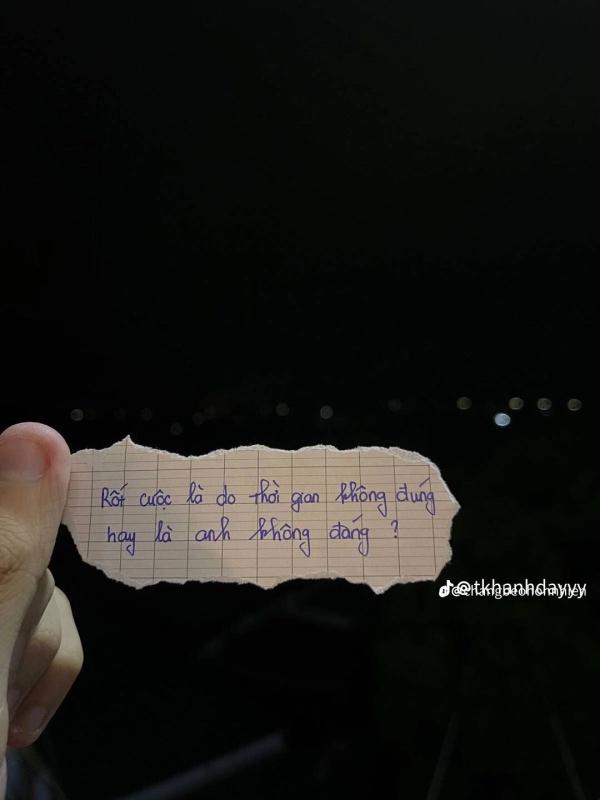 Rốt cuộc là do thời gian không đúng
hay là anh không đáng ?
@tkhanhdayyy